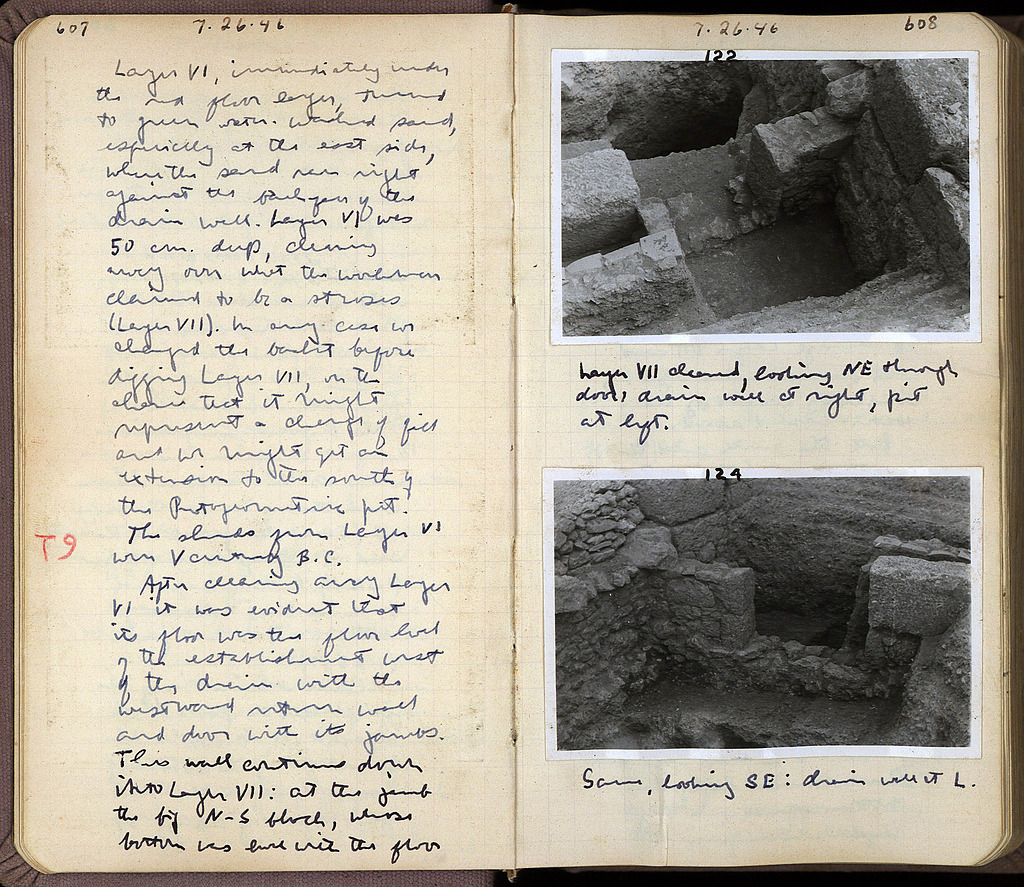 607
7.26.46
Layer VI, immediately under
the red floor layer, turned
to green water-washed sand,
especially at the east side,
where the sand ran right
against the back face of the
drain wall. Layer VI was
50 cm. deep, cleaning
away over what the workmen
claimed to be a stroses
(Layer VII). In any case we
changed the basket before
digging Layer VII, on the
chance that it might
represent a change of fill
and we might get an
extension to the south of
the Protogeometric pit.
The sherds from Layer VI
T9
were V century B.C.
After clearing away Layer
VI it was evident that
its floor was the floor level
of the establishment west
of the drain with the
westward return wall
and door with its jambs.
This wall continues down
into Layer VII: at the jamb
the big N-S block, whose
bottom was level with the floor
7.26.46
608
122
Layer VII cleaned, looking NE through
door; drain wall at right, pit
at left.
124
Same, looking SE: drain wall at L.